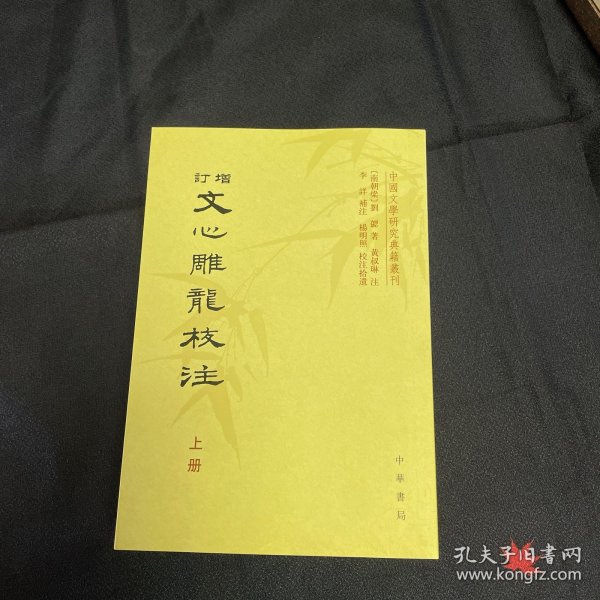 中國文學研究典籍叢刊
〔南朝梁〕劉勰 著 黃叔琳 注
李詳 補注 楊明照 校注拾遺
增訂
文心雕龍校注
上册
中華書局
孔夫子旧書网
www.kongfz.com